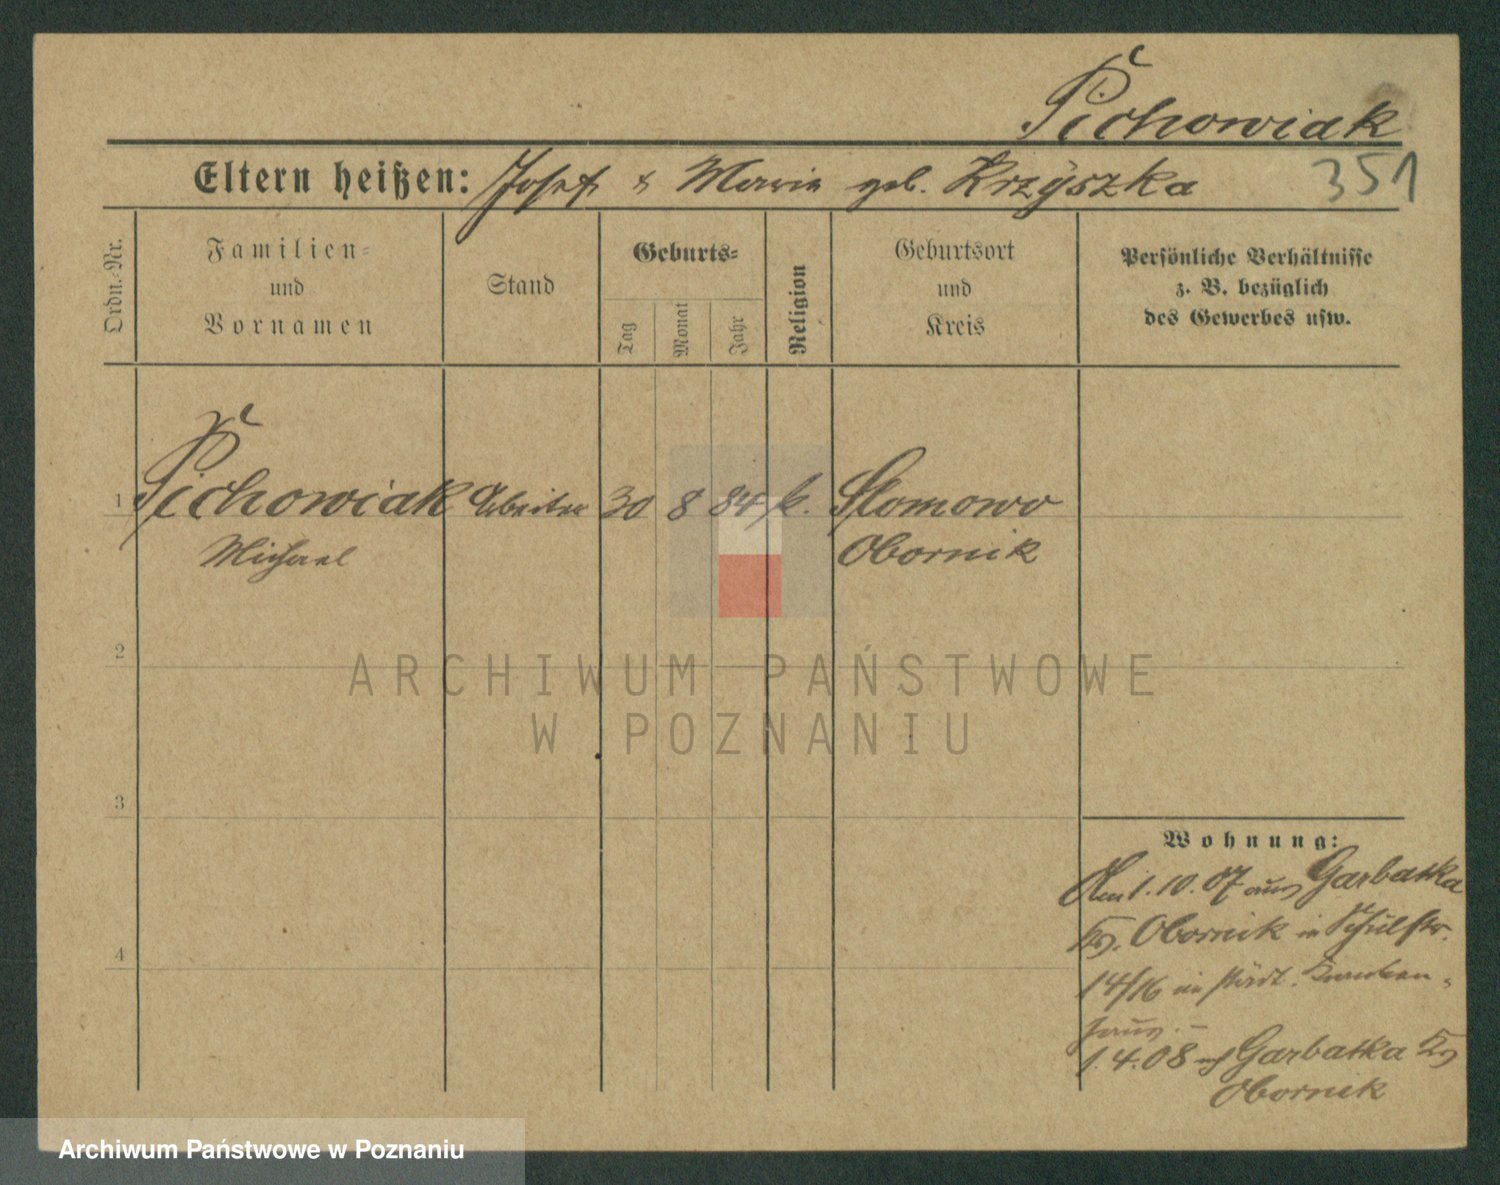 Pichowiak
Eltern heißen: Josef & Maria geb. Krzyszka 351
Ordn.-Nr.
Familien- und Vornamen
Stand
Geburts-
Tag
Monat
Jahr
Religion
Geburtsort und Kreis
Persönliche Verhältnisse
z. B. bezüglich
des Gewerbes usw.
1 Pichowiak Arbeiter 30 8 84 k. Slomowo
Michael Obornik
2
3
4
Wohnung:
1.10.07 aus Garbatka
Kr. Obornik in Schulstr.
14/16 im städt. Kranken-
haus. –
1.4.08 Garbatka Kr
Obornik
ARCHIWUM PAŃSTWOWE
W POZNANIU
Archiwum Państwowe w Poznaniu